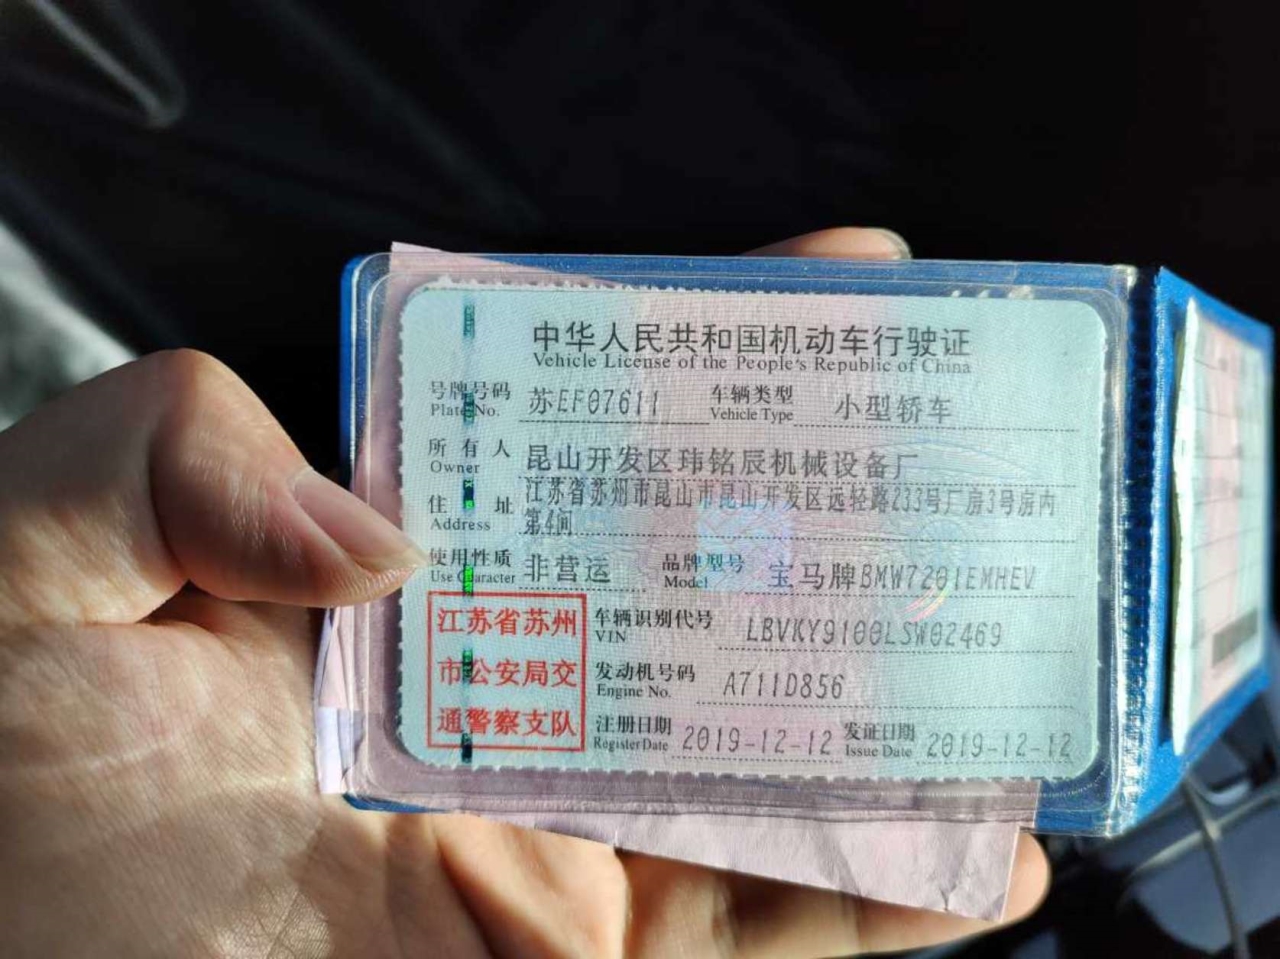 中华人民共和国机动车行驶证
Vehicle License of the People's Republic of China
号牌号码 苏EF07611 车辆类型 小型轿车
Plate No. Vehicle Type
所有人 昆山开发区玮铭辰机械设备厂
Owner
住址 江苏省苏州市昆山市昆山开发区远轻路233号厂房3号房内
Address 第4间
使用性质 非营运 品牌型号 宝马牌BMW7201EMHEV
Use Character Model
江苏省苏州
市公安局交
通警察支队
车辆识别代号 LBVKY9100LSW02469
VIN
发动机号码 A711D856
Engine No.
注册日期 2019-12-12 发证日期 2019-12-12
Register Date Issue Date